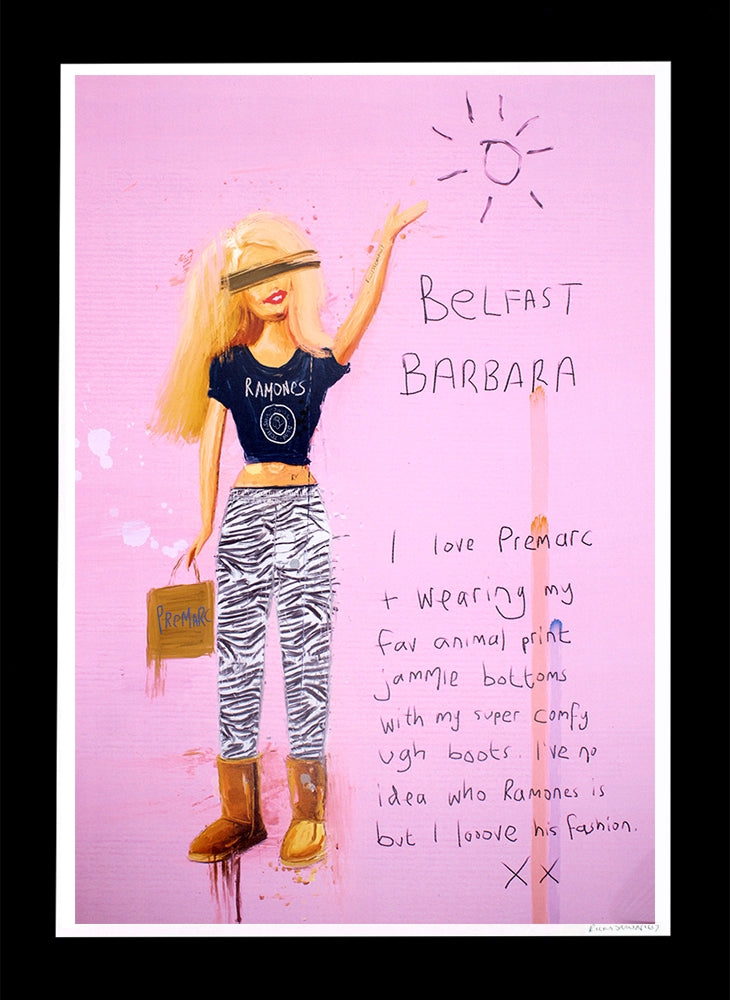 BELFAST
BARBARA
RAMONES
PREMARC
I love Premarc
+ wearing my
fav animal print
jammie bottoms
with my super comfy
ugh boots. I've no
idea who Ramones is
but I looove his fashion.
XX